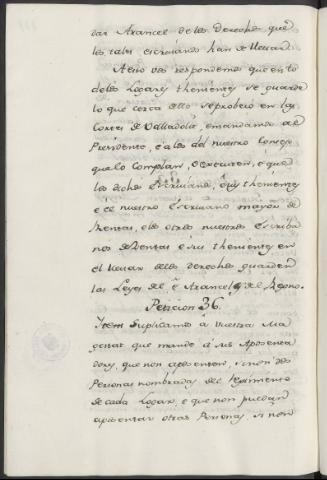 dar Arancel de los derechos que
los tales escrivanos han de llevar.
A esto vos respondemos que en to
do los Logares thenientes se guarde
lo que cerca dello se proveió en las
Cortes de Valladolid, e mandamos al
Presidente, e a los del nuestro Consejo
que lo Cumplan, y executen, e que
los dichos Escrivanos, e sus thenientes
e el nuestro Escrivano mayor de
Rentas, e los otros nuestros Escriba
nos de Rentas e sus thenientes en
el llevar de los derechos guarden
las Leyes del e Aranceles del Reyno.
Peticion 36.
Item Suplicamos a vuestra Ma
gestat que mande á sus Aposenta
dores, que non aposenten, si non dos
Personas nombradas del regimiento
de cada Logar, e que non puedan
aposentar otras Personas, si non